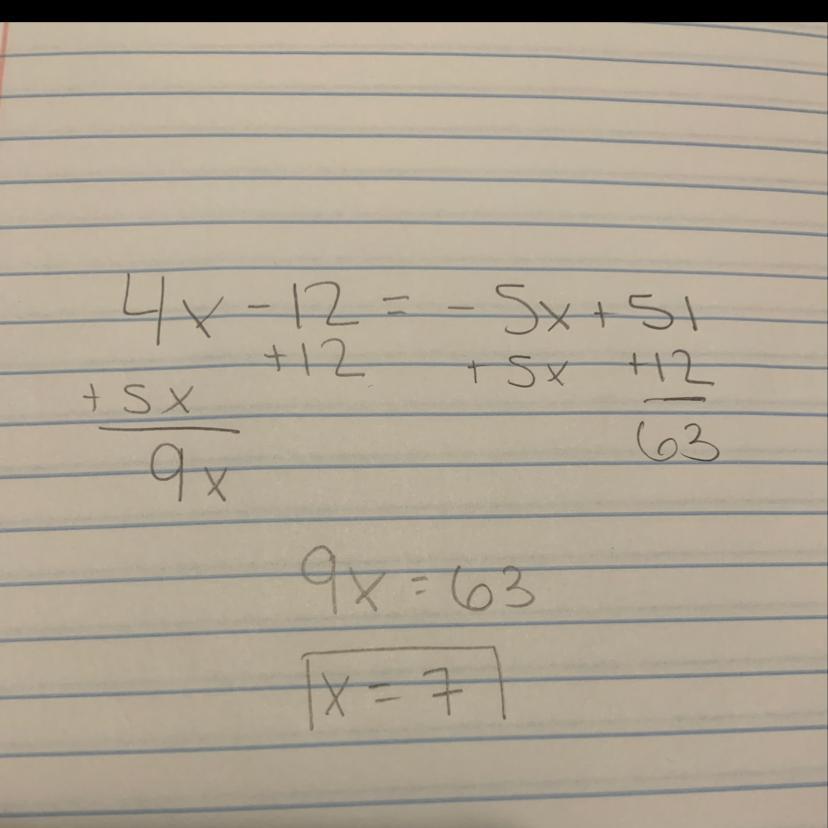 4x - 12 = - 5x + 51
+12 + 5x +12
+ 5x
63
9x
9x = 63
x = 7